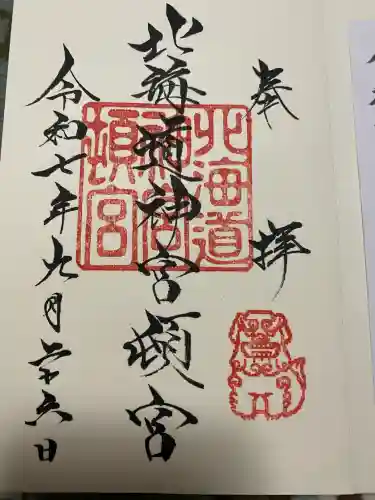 奉拝
北海道神宮頓宮
令和七年九月二十六日
北海道
神宮
頓宮